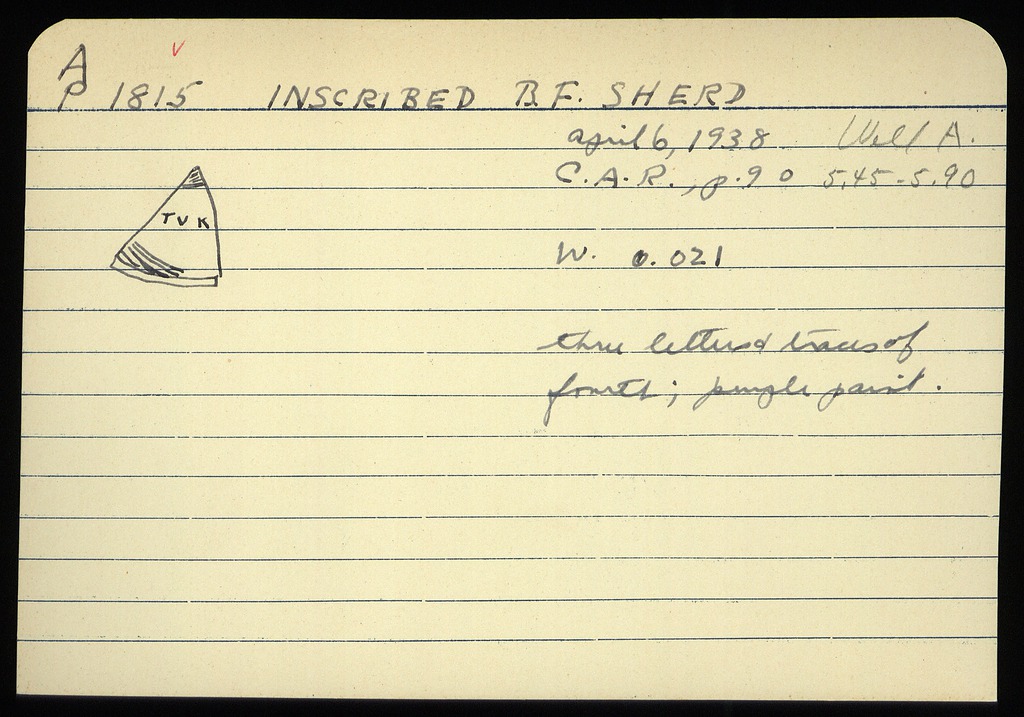 A
P 1815 INSCRIBED B.F. SHERD
April 6, 1938 Well A.
C.A.R., p. 90 5.45-5.90
TVK
W. 0.021
three letters & traces of
fourth; purple paint.